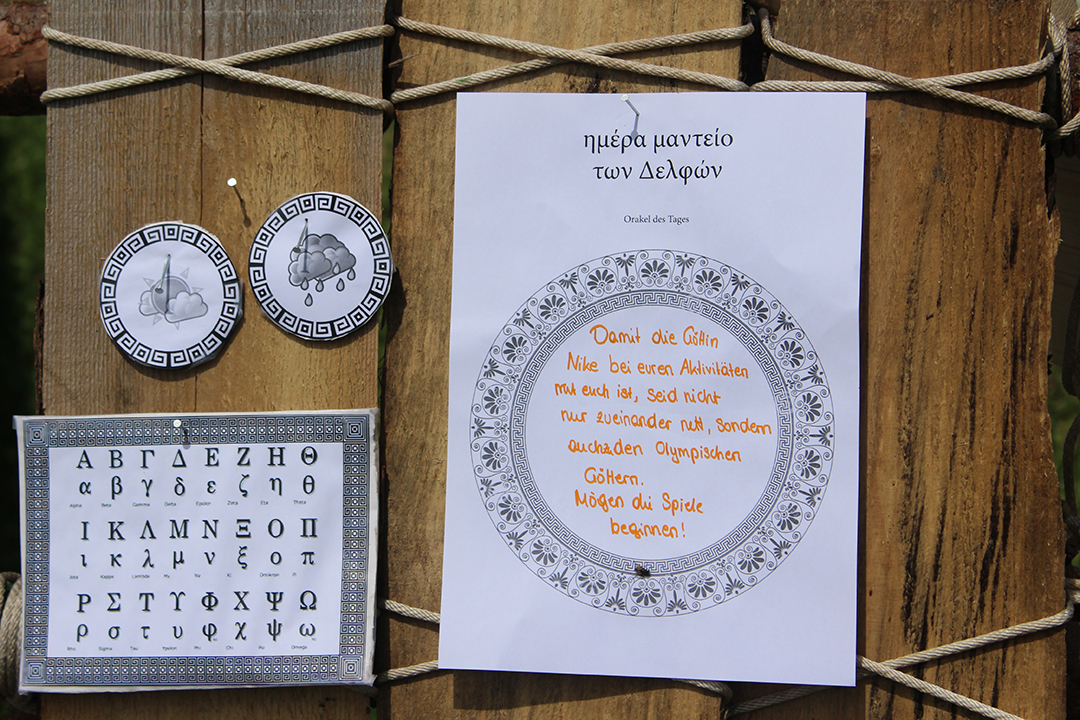 ημέρα μαντείο
των Δελφών
Orakel des Tages
Damit die Göttin
Nike bei euren Aktivitäten
mit euch ist, seid nicht
nur zueinander nett, sondern
auch den Olympischen
Göttern.
Mögen die Spiele
beginnen!
Α Β Γ Δ Ε Ζ Η Θ
α β γ δ ε ζ η θ
Alpha Beta Gamma Delta Epsilon Zeta Eta Theta
Ι Κ Λ Μ Ν Ξ Ο Π
ι κ λ μ ν ξ ο π
Iota Kappa My Ny Omikron Pi
Ρ Σ Τ Υ Φ Χ Ψ Ω
ρ σ τ υ φ χ ψ ω
Rho Sigma Tau Ypsilon Phi Chi Psi Omega